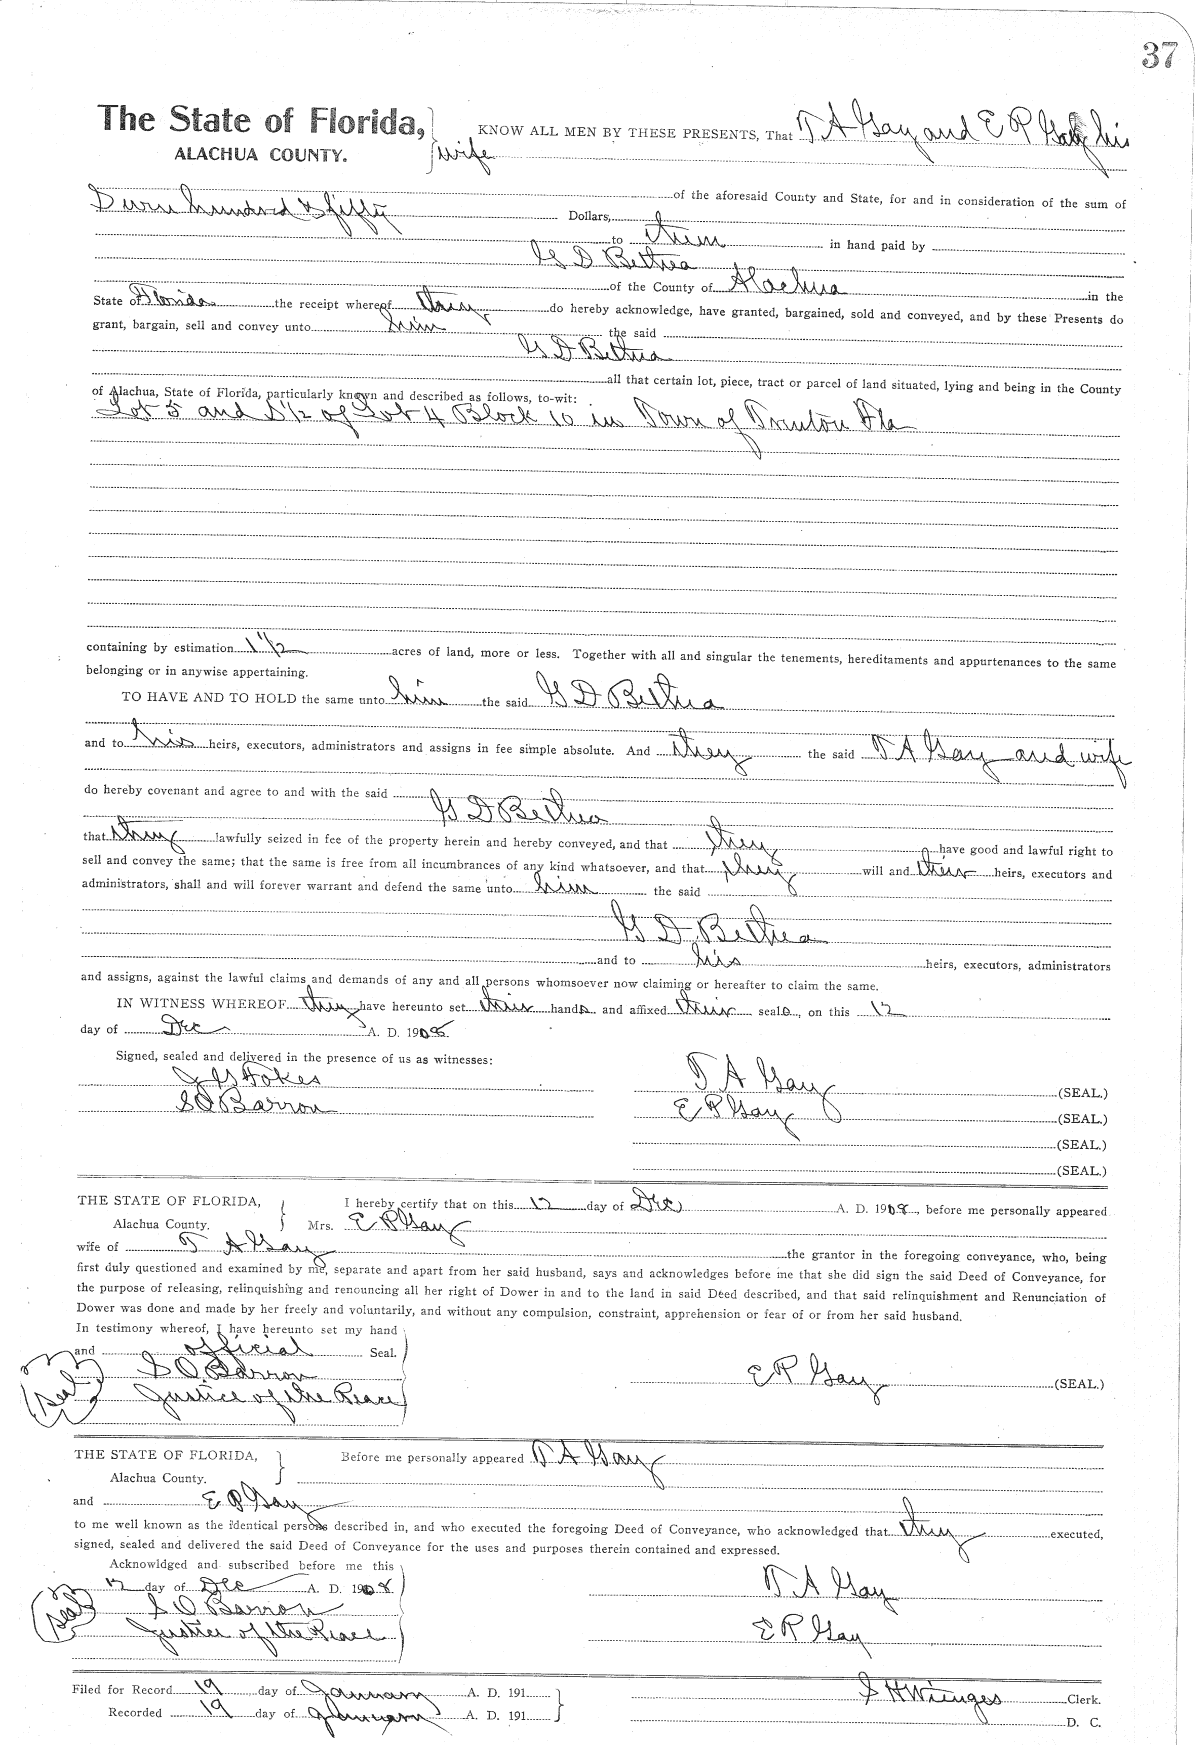 37
The State of Florida,
ALACHUA COUNTY.
KNOW ALL MEN BY THESE PRESENTS, That T A Gay and E P Gay his
wife
of the aforesaid County and State, for and in consideration of the sum of
hundred & fifty Dollars,
to them in hand paid by
G D Bethea
of the County of Alachua in the
State of Florida the receipt whereof they do hereby acknowledge, have granted, bargained, sold and conveyed, and by these Presents do
grant, bargain, sell and convey unto him the said
G D Bethea
all that certain lot, piece, tract or parcel of land situated, lying and being in the County
of Alachua, State of Florida, particularly known and described as follows, to-wit:
Lot 5 and S 1/2 of Lot 4 Block 10 in Town of Trenton Fla
containing by estimation 1 1/2 acres of land, more or less. Together with all and singular the tenements, hereditaments and appurtenances to the same
belonging or in anywise appertaining.
TO HAVE AND TO HOLD the same unto him the said G D Bethea
and to his heirs, executors, administrators and assigns in fee simple absolute. And they the said T A Gay and wife
do hereby covenant and agree to and with the said G D Bethea
that they lawfully seized in fee of the property herein and hereby conveyed, and that they have good and lawful right to
sell and convey the same; that the same is free from all incumbrances of any kind whatsoever, and that they will and their heirs, executors and
administrators, shall and will forever warrant and defend the same unto him the said
G D Bethea
and to his heirs, executors, administrators
and assigns, against the lawful claims and demands of any and all persons whomsoever now claiming or hereafter to claim the same.
IN WITNESS WHEREOF they have hereunto set their hands and affixed their seals, on this 12
day of Dec A. D. 1908
Signed, sealed and delivered in the presence of us as witnesses:
Fokes T A Gay (SEAL.)
S O Barron E P Gay (SEAL.)
(SEAL.)
(SEAL.)
THE STATE OF FLORIDA,
Alachua County.
I hereby certify that on this 12 day of Dec A. D. 1908, before me personally appeared
Mrs. E P Gay
wife of T A Gay the grantor in the foregoing conveyance, who, being
first duly questioned and examined by me, separate and apart from her said husband, says and acknowledges before me that she did sign the said Deed of Conveyance, for
the purpose of releasing, relinquishing and renouncing all her right of Dower in and to the land in said Deed described, and that said relinquishment and Renunciation of
Dower was done and made by her freely and voluntarily, and without any compulsion, constraint, apprehension or fear of or from her said husband.
In testimony whereof, I have hereunto set my hand
and official Seal.
S O Barron
(seal) Justice of the Peace
E P Gay (SEAL.)
THE STATE OF FLORIDA,
Alachua County.
Before me personally appeared T A Gay
and E P Gay
to me well known as the identical persons described in, and who executed the foregoing Deed of Conveyance, who acknowledged that they executed,
signed, sealed and delivered the said Deed of Conveyance for the uses and purposes therein contained and expressed.
Acknowldged and subscribed before me this
12 day of Dec A. D. 1908
T A Gay
(seal) S O Barron
Justice of the Peace
E P Gay
Filed for Record 19 day of January A. D. 191
S H Wienges Clerk.
Recorded 19 day of January A. D. 191
D. C.